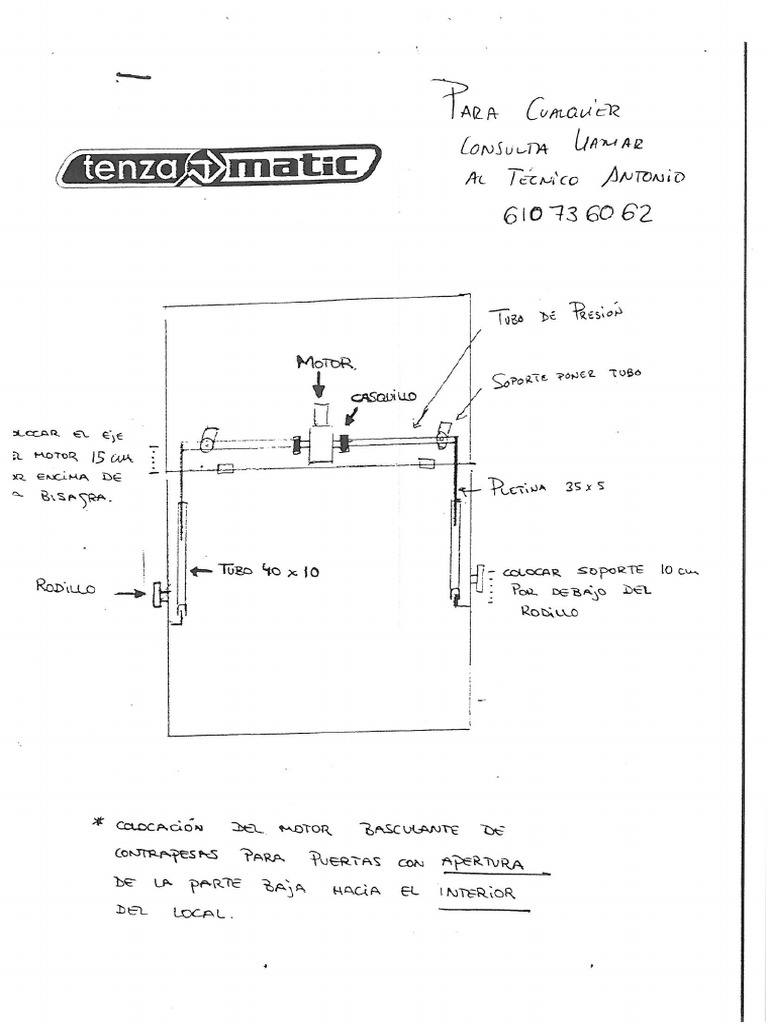 PARA CUALQUIER
CONSULTA LLAMAR
AL TÉCNICO ANTONIO
610 73 60 62
tenza matic
TUBO DE PRESIÓN
MOTOR.
SOPORTE PONER TUBO
CASQUILLO
OLOCAR EL EJE
EL MOTOR 15 cm
OR ENCIMA DE
A BISAGRA.
PLETINA 35 x 5
TUBO 40 x 10
RODILLO
COLOCAR SOPORTE 10 cm
POR DEBAJO DEL
RODILLO
* COLOCACIÓN DEL MOTOR BASCULANTE DE
CONTRAPESAS PARA PUERTAS CON APERTURA
DE LA PARTE BAJA HACIA EL INTERIOR
DEL LOCAL.